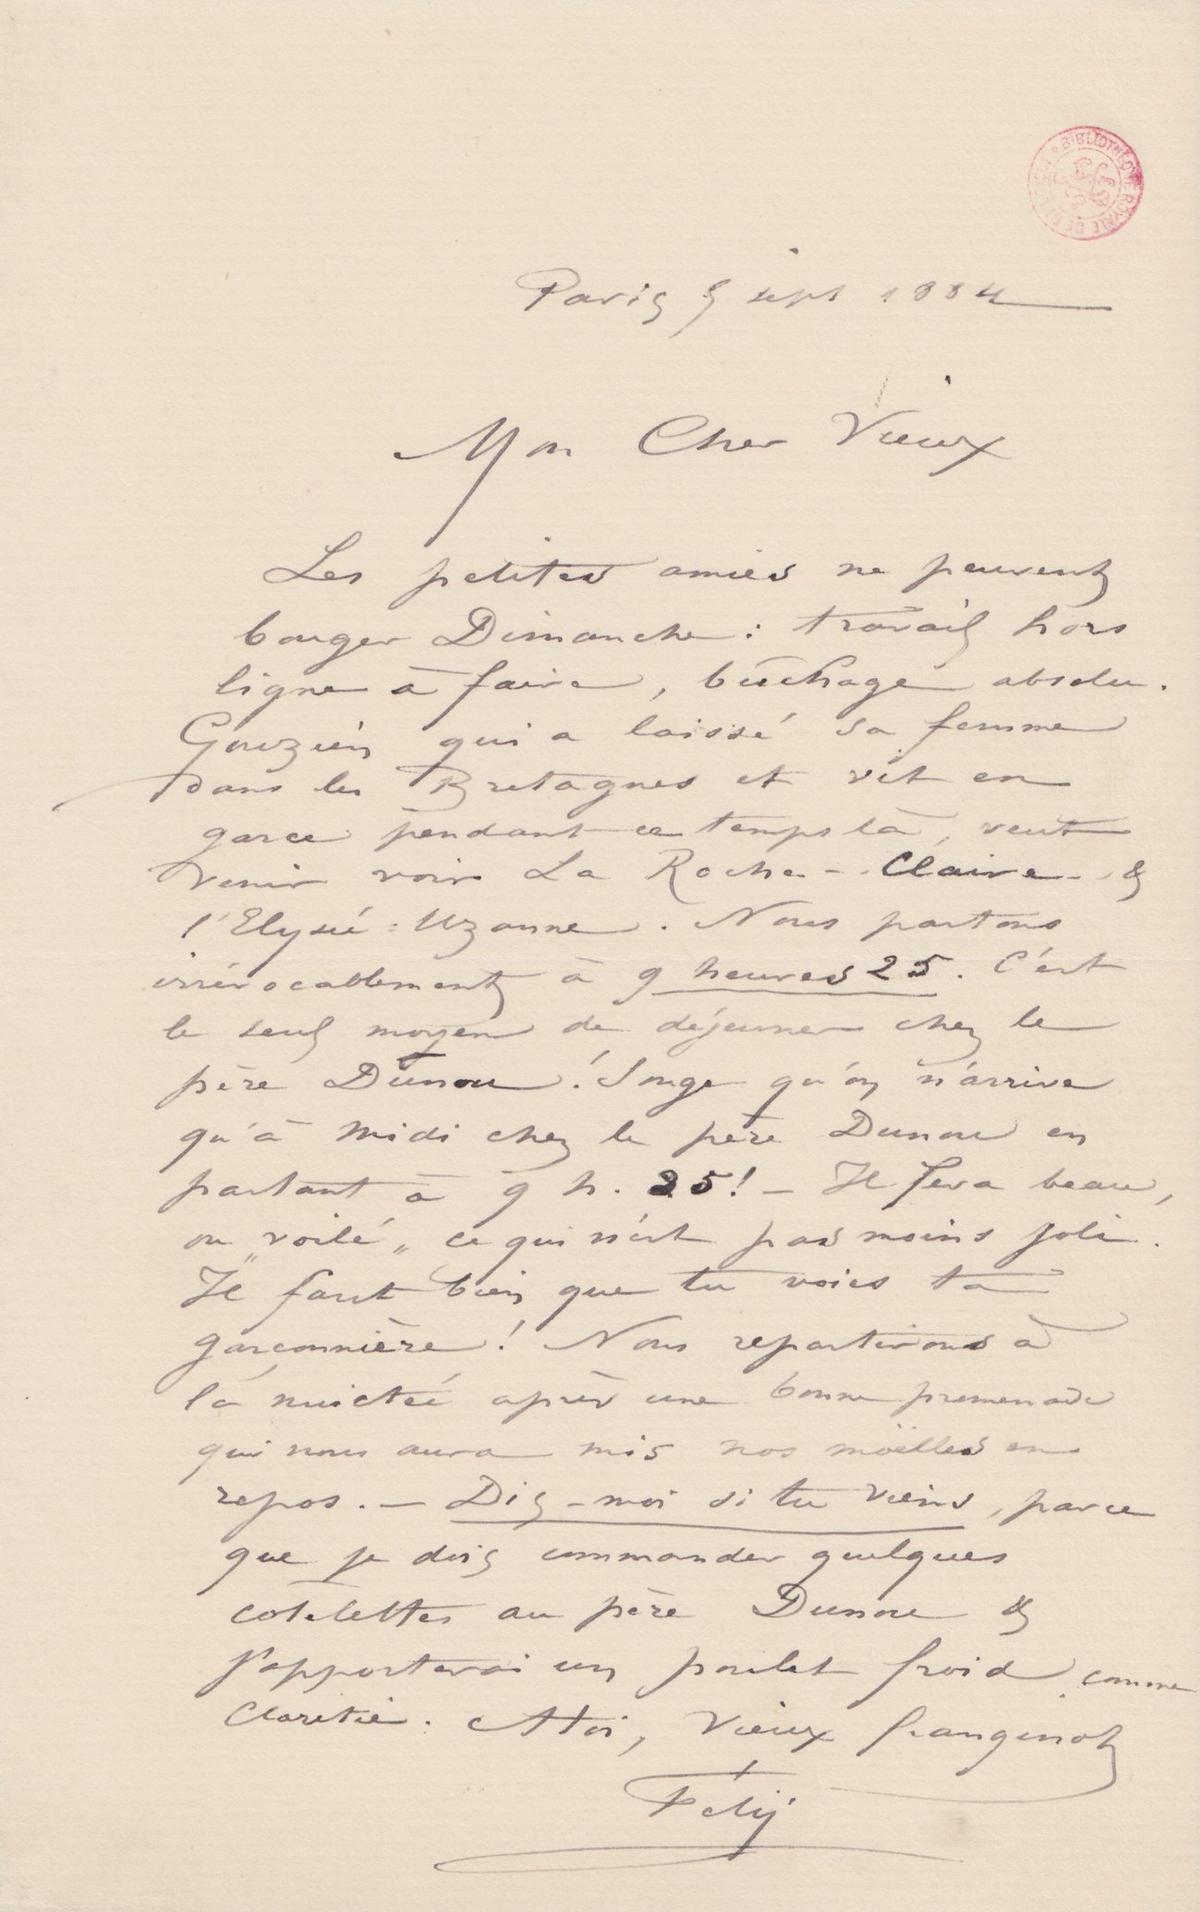 BIBLIOTHEQUE ROYALE DE BELGIQUE
Paris 5 sept 1884
Mon Cher Vieux
Les petites amies ne peuvent
bouger Dimanche : travail hors
ligne à faire, bûchage absolu.
Gouzien qui a laissé sa femme
dans les Bretagnes et vit en
garce pendant ce temps là, veut
venir voir La Roche-Claire &
l'Elysée-Uzanne. Nous partons
irrévocablement à 9 heures 25. C'est
le seul moyen de déjeuner chez le
père Dunou ! Songe qu'on n'arrive
qu'à midi chez le père Dunou en
partant à 9 h. 25! – Il fera beau,
ou „voilé„ ce qui n'est pas moins joli.
Il faut bien que tu voies ta
garçonnière ! Nous repartirons à
la nuictée après une bonne promenade
qui nous aura mis nos moëlles en
repos. – Dis-moi si tu viens, parce
que je dois commander quelques
cotelettes au père Dunou &
j'apporterai un poulet froid comme
Claretie. A toi, vieux franginot
Fély